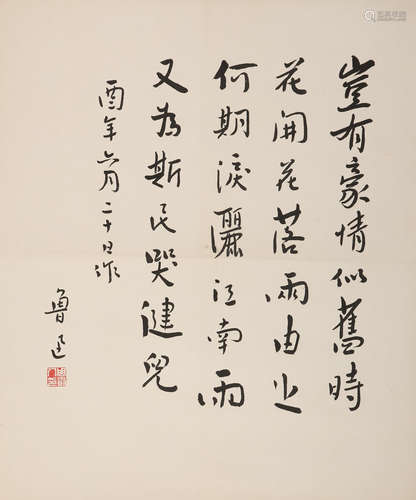 豈有豪情似舊時
花開花落兩由之
何期淚灑江南雨
又為斯民哭健兒
酉年六月二十日作
魯迅